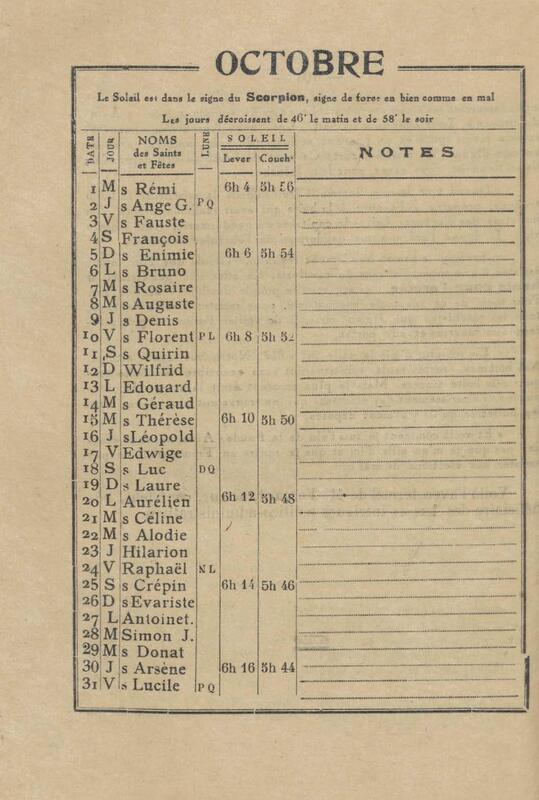 OCTOBRE
Le Soleil est dans le signe du Scorpion, signe de force en bien comme en mal
Les jours décroissent de 46' le matin et de 58' le soir
DATE JOUR NOMS des Saints et Fêtes LUNE SOLEIL Lever Couch^t NOTES
1 M s Rémi 6h 4 5h 56
2 J s Ange G. PQ
3 V s Fauste
4 S François
5 D s Enimie 6h 6 5h 54
6 L s Bruno
7 M s Rosaire
8 M s Auguste
9 J s Denis
10 V s Florent PL 6h 8 5h 52
11 S s Quirin
12 D Wilfrid
13 L Edouard
14 M s Géraud
15 M s Thérèse 6h 10 5h 50
16 J s Léopold
17 V Edwige
18 S s Luc DQ
19 D s Laure
20 L Aurélien 6h 12 5h 48
21 M s Céline
22 M s Alodie
23 J Hilarion
24 V Raphaël NL
25 S s Crépin 6h 14 5h 46
26 D s Evariste
27 L Antoinet.
28 M Simon J.
29 M s Donat
30 J s Arsène 6h 16 5h 44
31 V s Lucile PQ